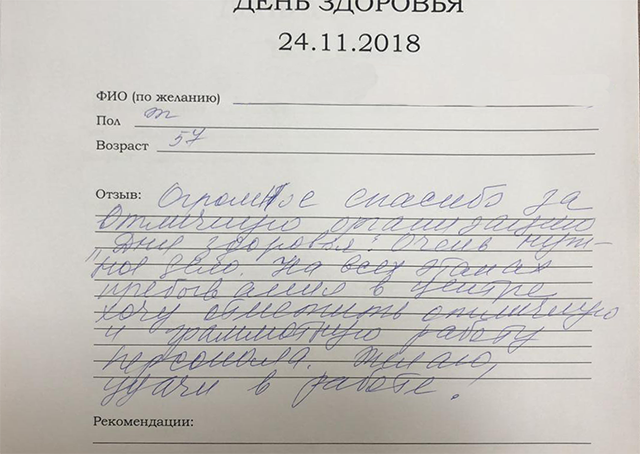 ДЕНЬ ЗДОРОВЬЯ
24.11.2018
ФИО (по желанию)
Пол m
Возраст 57
Отзыв: Огромное спасибо за
отличную организацию
„Дня здоровья". Очень нуж-
ное дело. На всех этапах
пребывания в центре
хочу отметить отличную
и грамотную работу
персонала. Желаю
удачи в работе!
Рекомендации: